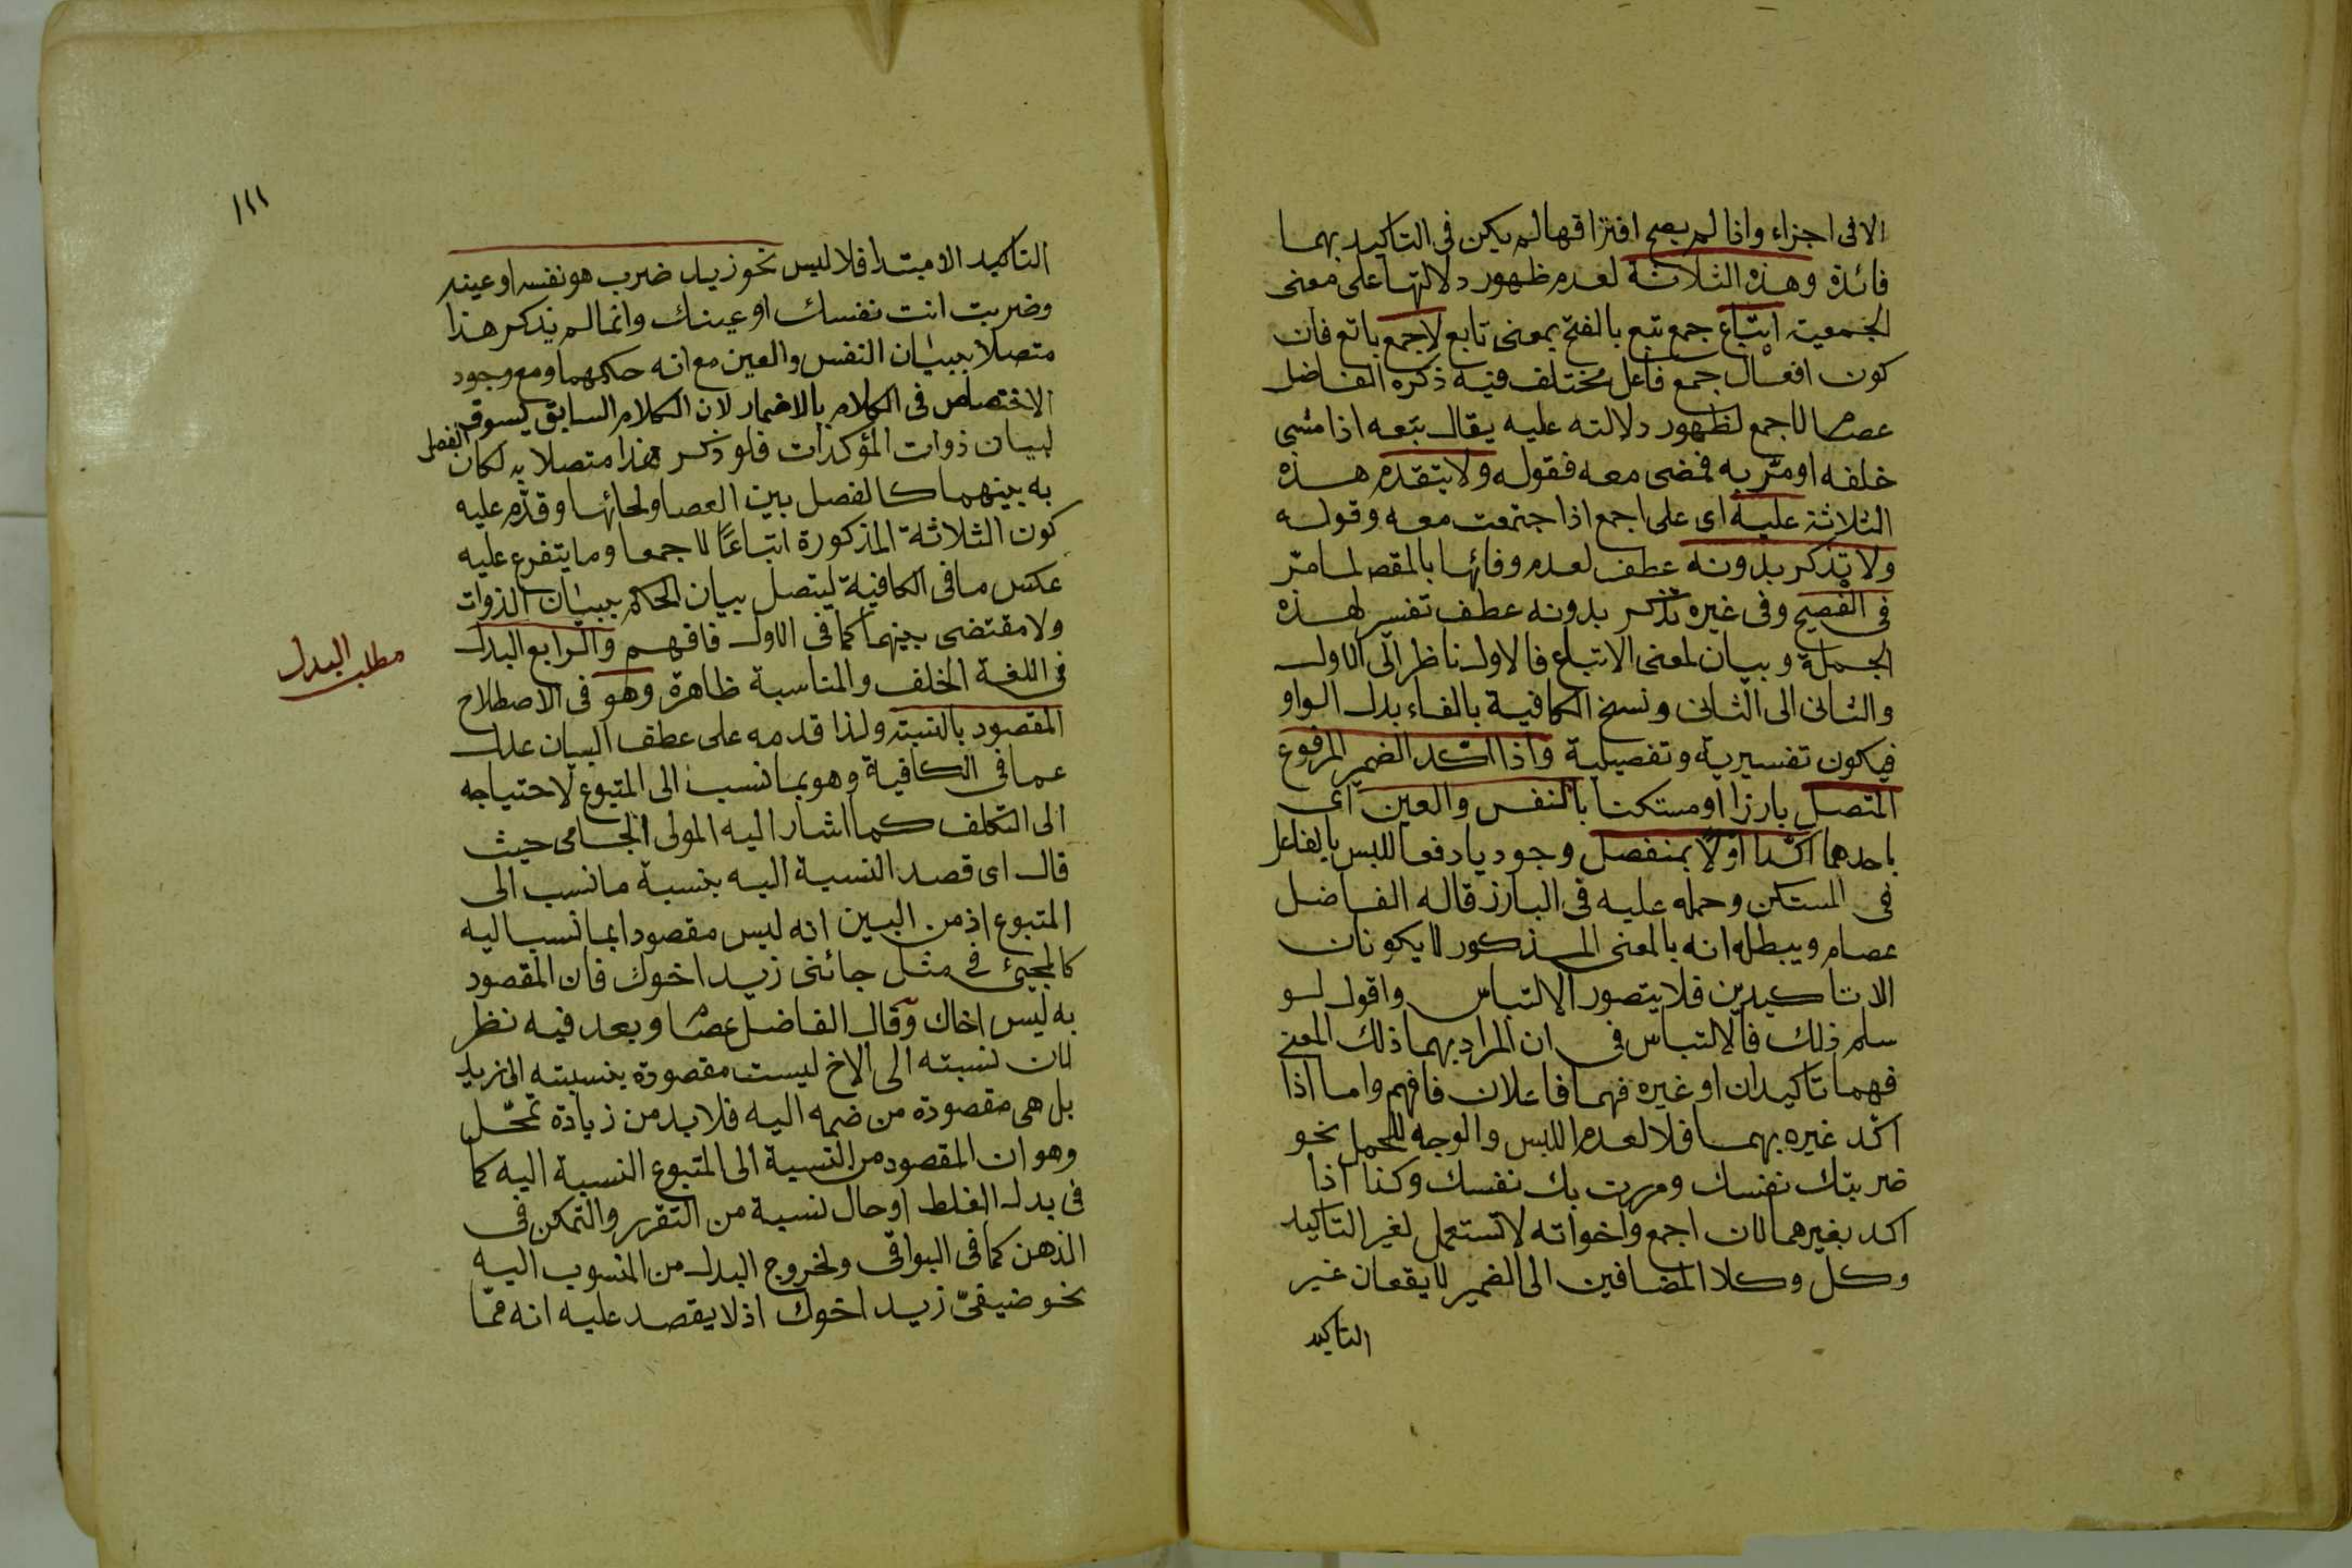 الا فى اجزاء واذا لم يصح افتراقها لم يكن فى التاكيد بهما
فائدة وهذه الثلاثة لعدم ظهور دلالتها على معنى
الجمعية اتباع جمع تبع بالفتح بمعنى تابع لاجمع باتع فان
كون افعال جمع فاعل مختلف فيه ذكره الفاضل
عصام لاجمع لظهور دلالته عليه يقال تبعه اذا مشى
خلفه او مر به فمضى معه فقوله ولا يتقدم هذه
الثلاثة عليه اى على اجمع اذا جتمعت معه وقوله
ولا تذكر بدونه عطف لعدم وفائها بالمقص لما مر
فى الفصيح وفى غيره تذكر بدونه عطف تفسير لهذه
الجملة وبيان لمعنى الاتباع فالاول ناظر الى الاول
والثانى الى الثانى ونسخ الكافية بالفاء بدل الواو
فيكون تفسيرية وتفصيلية واذا اكد الضمير المرفوع
المتصل بارزا او مستكنا بالنفس والعين اى
باحدهما اكد اولا بمنفصل وجوديا دفعا للبس بالفاعل
فى المستكن وحمله عليه فى البارز قاله الفاضل
عصام ويبطله انه بالمعنى المذكور لا يكونان
الا تاكيدين فلا يتصور الالتباس واقول لو
سلم ذلك فالالتباس فى ان المراد بهما ذلك المعنى
فهما تاكيدان او غيره فهما فاعلان فافهم واما اذا
اكد غيره بهما فلا لعدم اللبس والوجه للحمل نحو
ضربتك نفسك ومررت بك نفسك وكذا اذا
اكد بغيرهما لان اجمع واخواته لا تستعمل لغير التاكيد
وكل وكلا المضافين الى الضمير لا يقعان غير
التاكيد
١١١
التاكيد الا مبتدا فلا لبس نحو زيد ضرب هو نفسه او عينه
وضربت انت نفسك او عينك وانما لم يذكر هذا
متصلا ببيان النفس والعين مع انه حكمهما ومع وجود
الاختصاص فى الكلام بالاضمار لان الكلام السابق لسوقه
لبيان ذوات المؤكدات فلو ذكر هذا متصلا به لكان الفصل
به بينهما كالفصل بين العصا ولحائها وقدم عليه
كون الثلاثة المذكورة اتباعا لاجمع وما يتفرع عليه
عكس ما فى الكافية ليتصل بيان الحكم ببيان الذوات
ولا مقتضى بينهما كما فى الاول فافهم والرابع البدل
مطلب البدل
فى اللغة الخلف والمناسبة ظاهرة وهو فى الاصطلاح
المقصود بالنسبة ولذا قدمه على عطف البيان عدل
عما فى الكافية وهو بما نسب الى المتبوع لاحتياجه
الى التكلف كما اشار اليه المولى الجامى حيث
قال اى قصد النسبة اليه بنسبة ما نسب الى
المتبوع اذ من البين انه ليس مقصودا بما نسب اليه
كالمجيئ فى مثل جائنى زيد اخوك فان المقصود
به ليس اخاك وقال الفاضل عصام وبعد فيه نظر
لان نسبته الى الاخ ليست مقصودة بنسبته الى زيد
بل هى مقصودة من ضمه اليه فلا بد من زيادة تمحل
وهو ان المقصود من النسبة الى المتبوع النسبة اليه كما
فى بدل الغلط او حال نسبة من التقرر والتمكن فى
الذهن كما فى البواقى ولخروج البدل من المنسوب اليه
نحو ضيفى زيد اخوك اذ لا يقصد عليه انه مما